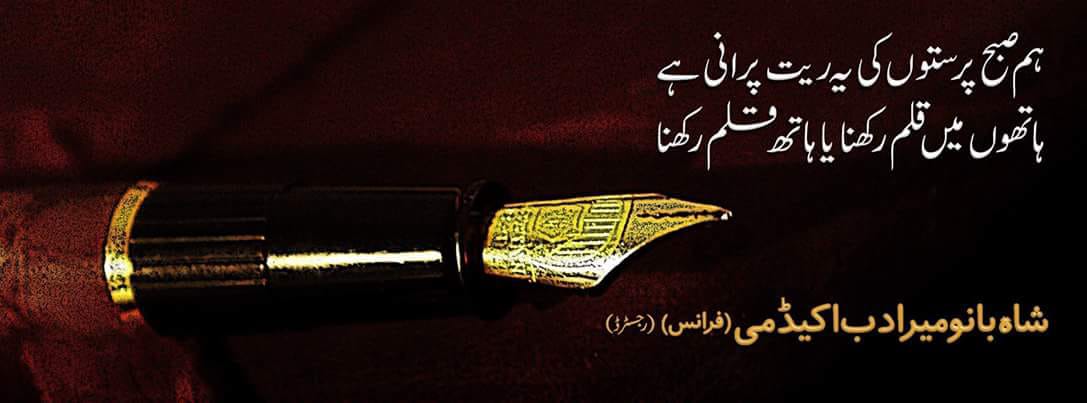 ہم صبح پرستوں کی یہ ریت پرانی ہے
ہاتھوں میں قلم رکھنا یا ہاتھ قلم رکھنا
شاہ بانو میر ادب اکیڈمی (فرانس) (رجسٹرڈ)